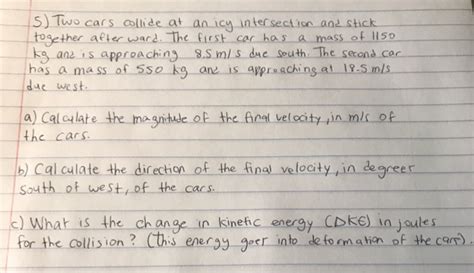 5) Two cars collide at an icy intersection and stick
together afterward. The first car has a mass of 1150
kg and is approaching 8.5 m/s due south. The second car
has a mass of 550 kg and is approaching at 18.5 m/s
due west.
a) Calculate the magnitude of the final velocity, in m/s of
the cars.
b) Calculate the direction of the final velocity, in degrees
south of west, of the cars.
c) What is the change in kinetic energy (DKE) in joules
for the collision? (This energy goes into deformation of the cars).